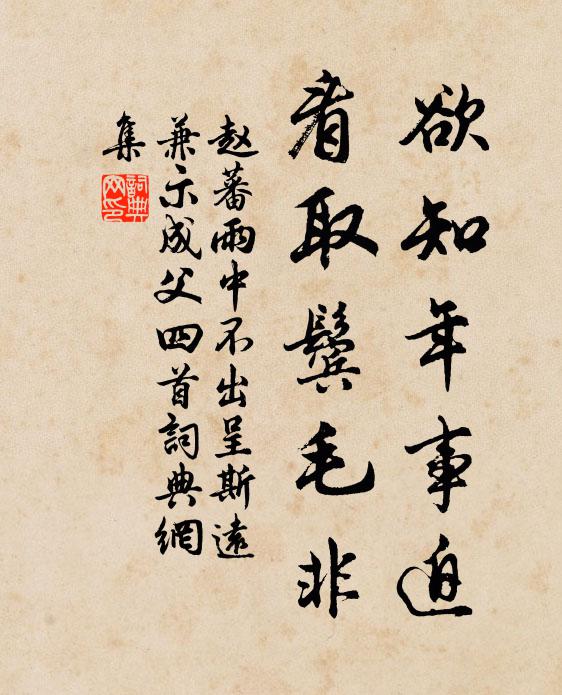 欲知年事迫
看取鬢毛非
赵蕃雨中不出呈斯遠
兼示成父四首詞典網
集
詞典
网印